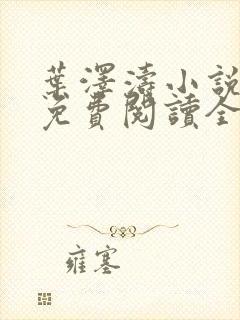 葉澤濤小說
免費閱讀全
雍塞